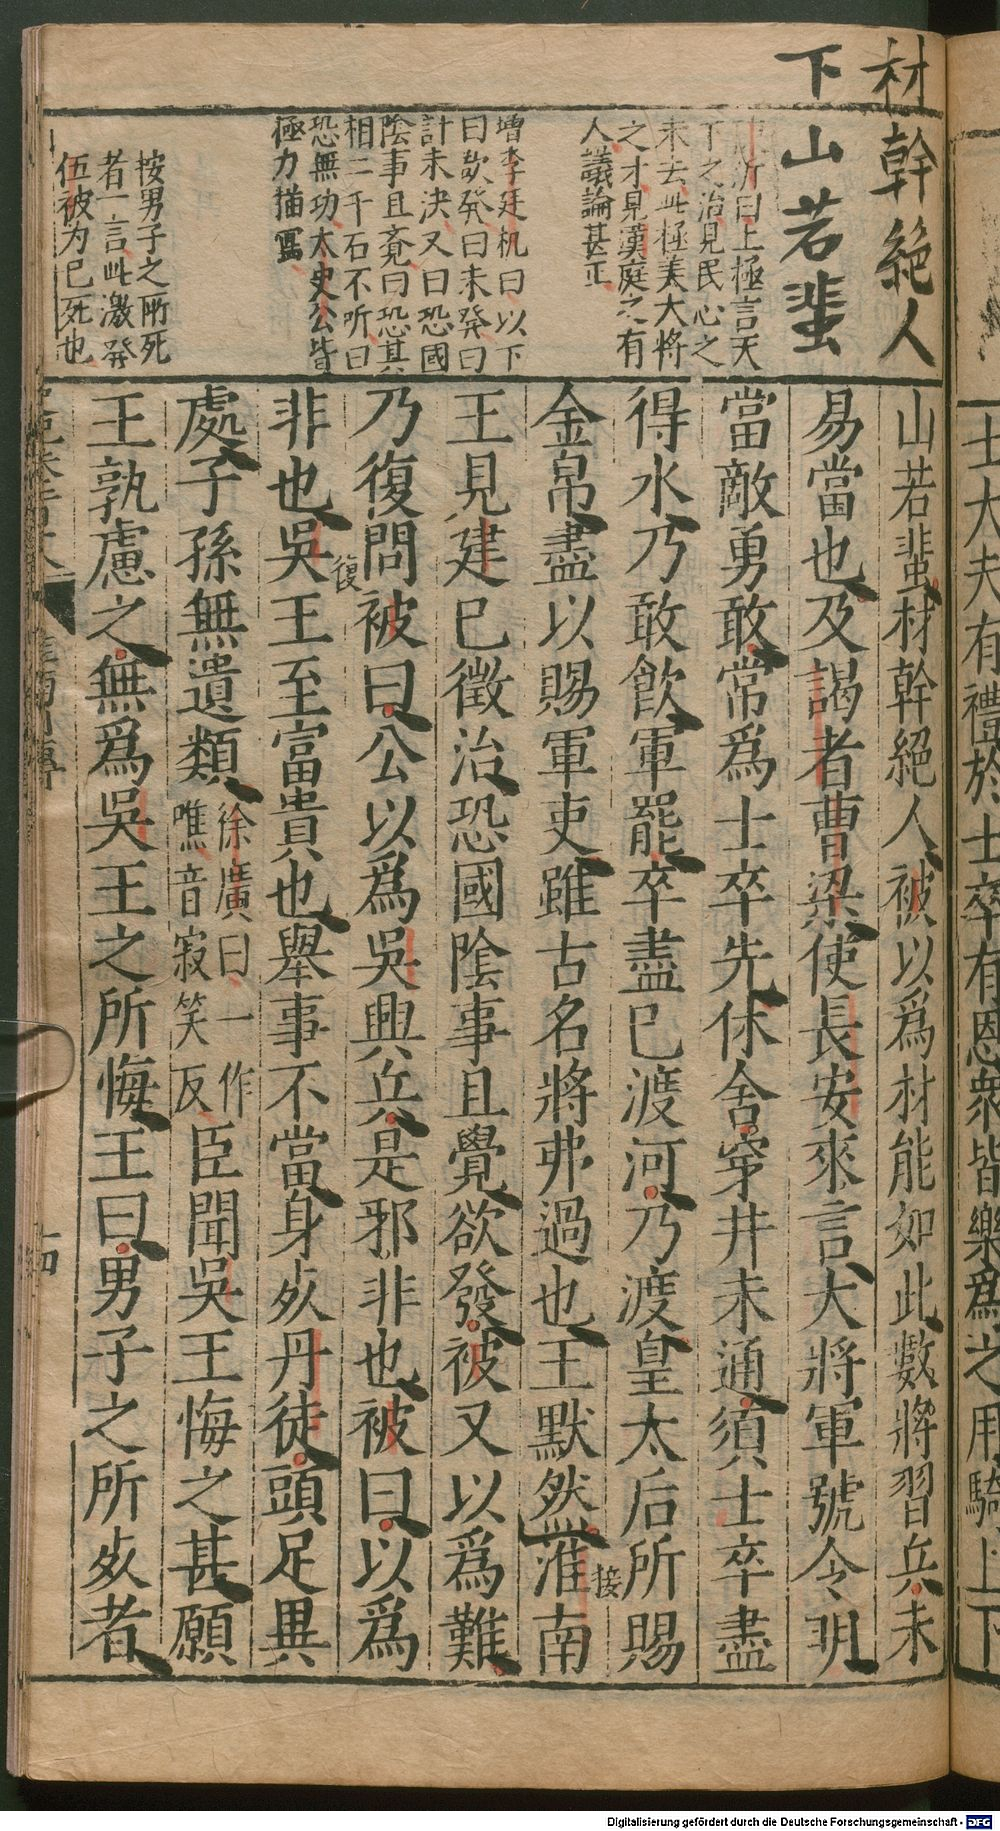 士大夫有禮於士卒有恩衆皆樂爲之用騎上下
材幹絕人
下山若蜚
上極言天
下之治見民心之
未去此極美大將
之才見漢庭之有
人議論甚正
增李廷机曰以下
曰欲發曰未發曰
計未決又曰恐國
陰事且覺曰恐其
相二千石不聽曰
恐無功太史公皆
極力描寫
按男子之所死
者一言此激發
伍被为已死也
山若蜚材幹絕人被以爲材能如此數將習兵未
易當也及謁者曹梁使長安來言大將軍號令明
當敵勇敢常爲士卒先休舍穿井未通須士卒盡
得水乃敢飲軍罷卒盡已渡河乃渡皇太后所賜
金帛盡以賜軍吏雖古名將弗過也王默然淮南
接
王見建已徵治恐國陰事且覺欲發被又以爲難
乃復問被曰公以爲吳興兵是邪非也被曰以爲
復
非也吳王至富貴也舉事不當身死丹徒頭足異
處子孫無遺類
徐廣曰一作
噍音寂笑反
臣聞吳王悔之甚願
王孰慮之無爲吳王之所悔王曰男子之所死者
十四
Digitalisierung gefördert durch die Deutsche Forschungsgemeinschaft - DFG